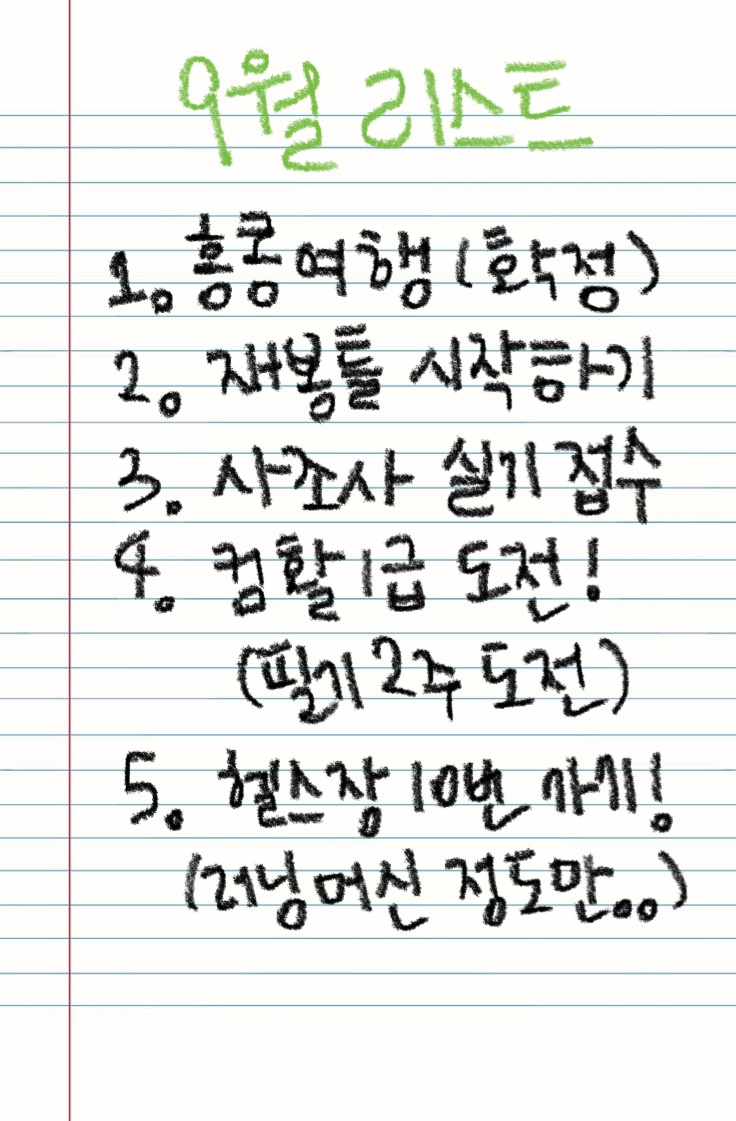 9월 리스트
1. 홍콩여행 (확정)
2. 재봉틀 시작하기
3. 사조사 실기 접수
4. 컴활 1급 도전!
(필기 2주 도전)
5. 헬스장 10번 가기!
(러닝머신 정도만..)